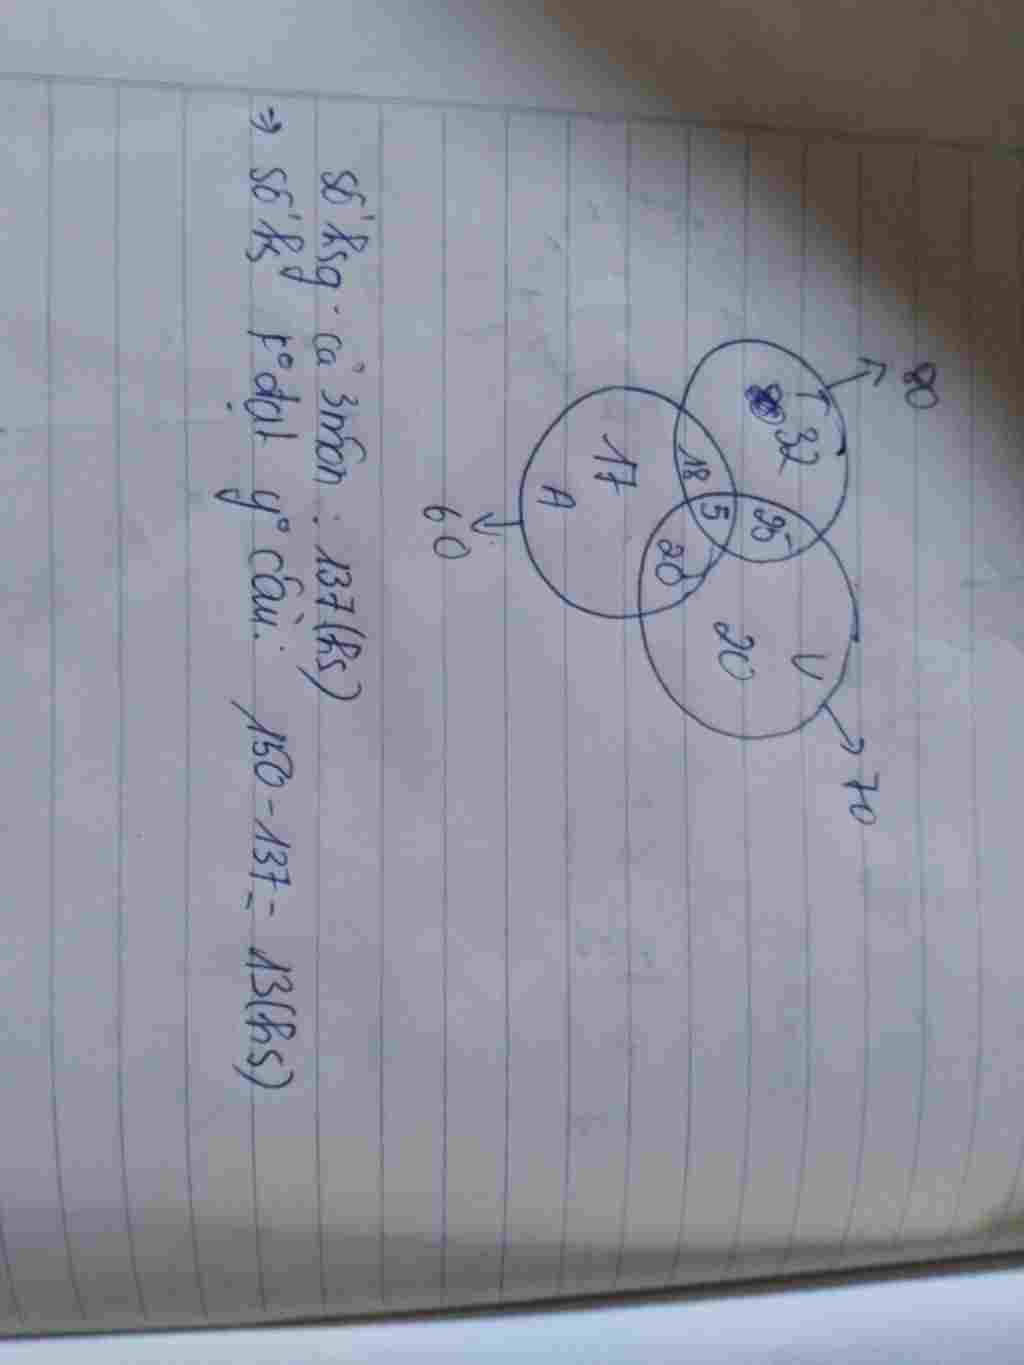 80
70
T
32
25
V
20
18
5
20
17
A
60
số hsg cả 3 môn : 137 (hs)
→ số hs k° đạt y° cầu: 150 - 137 = 13 (hs)